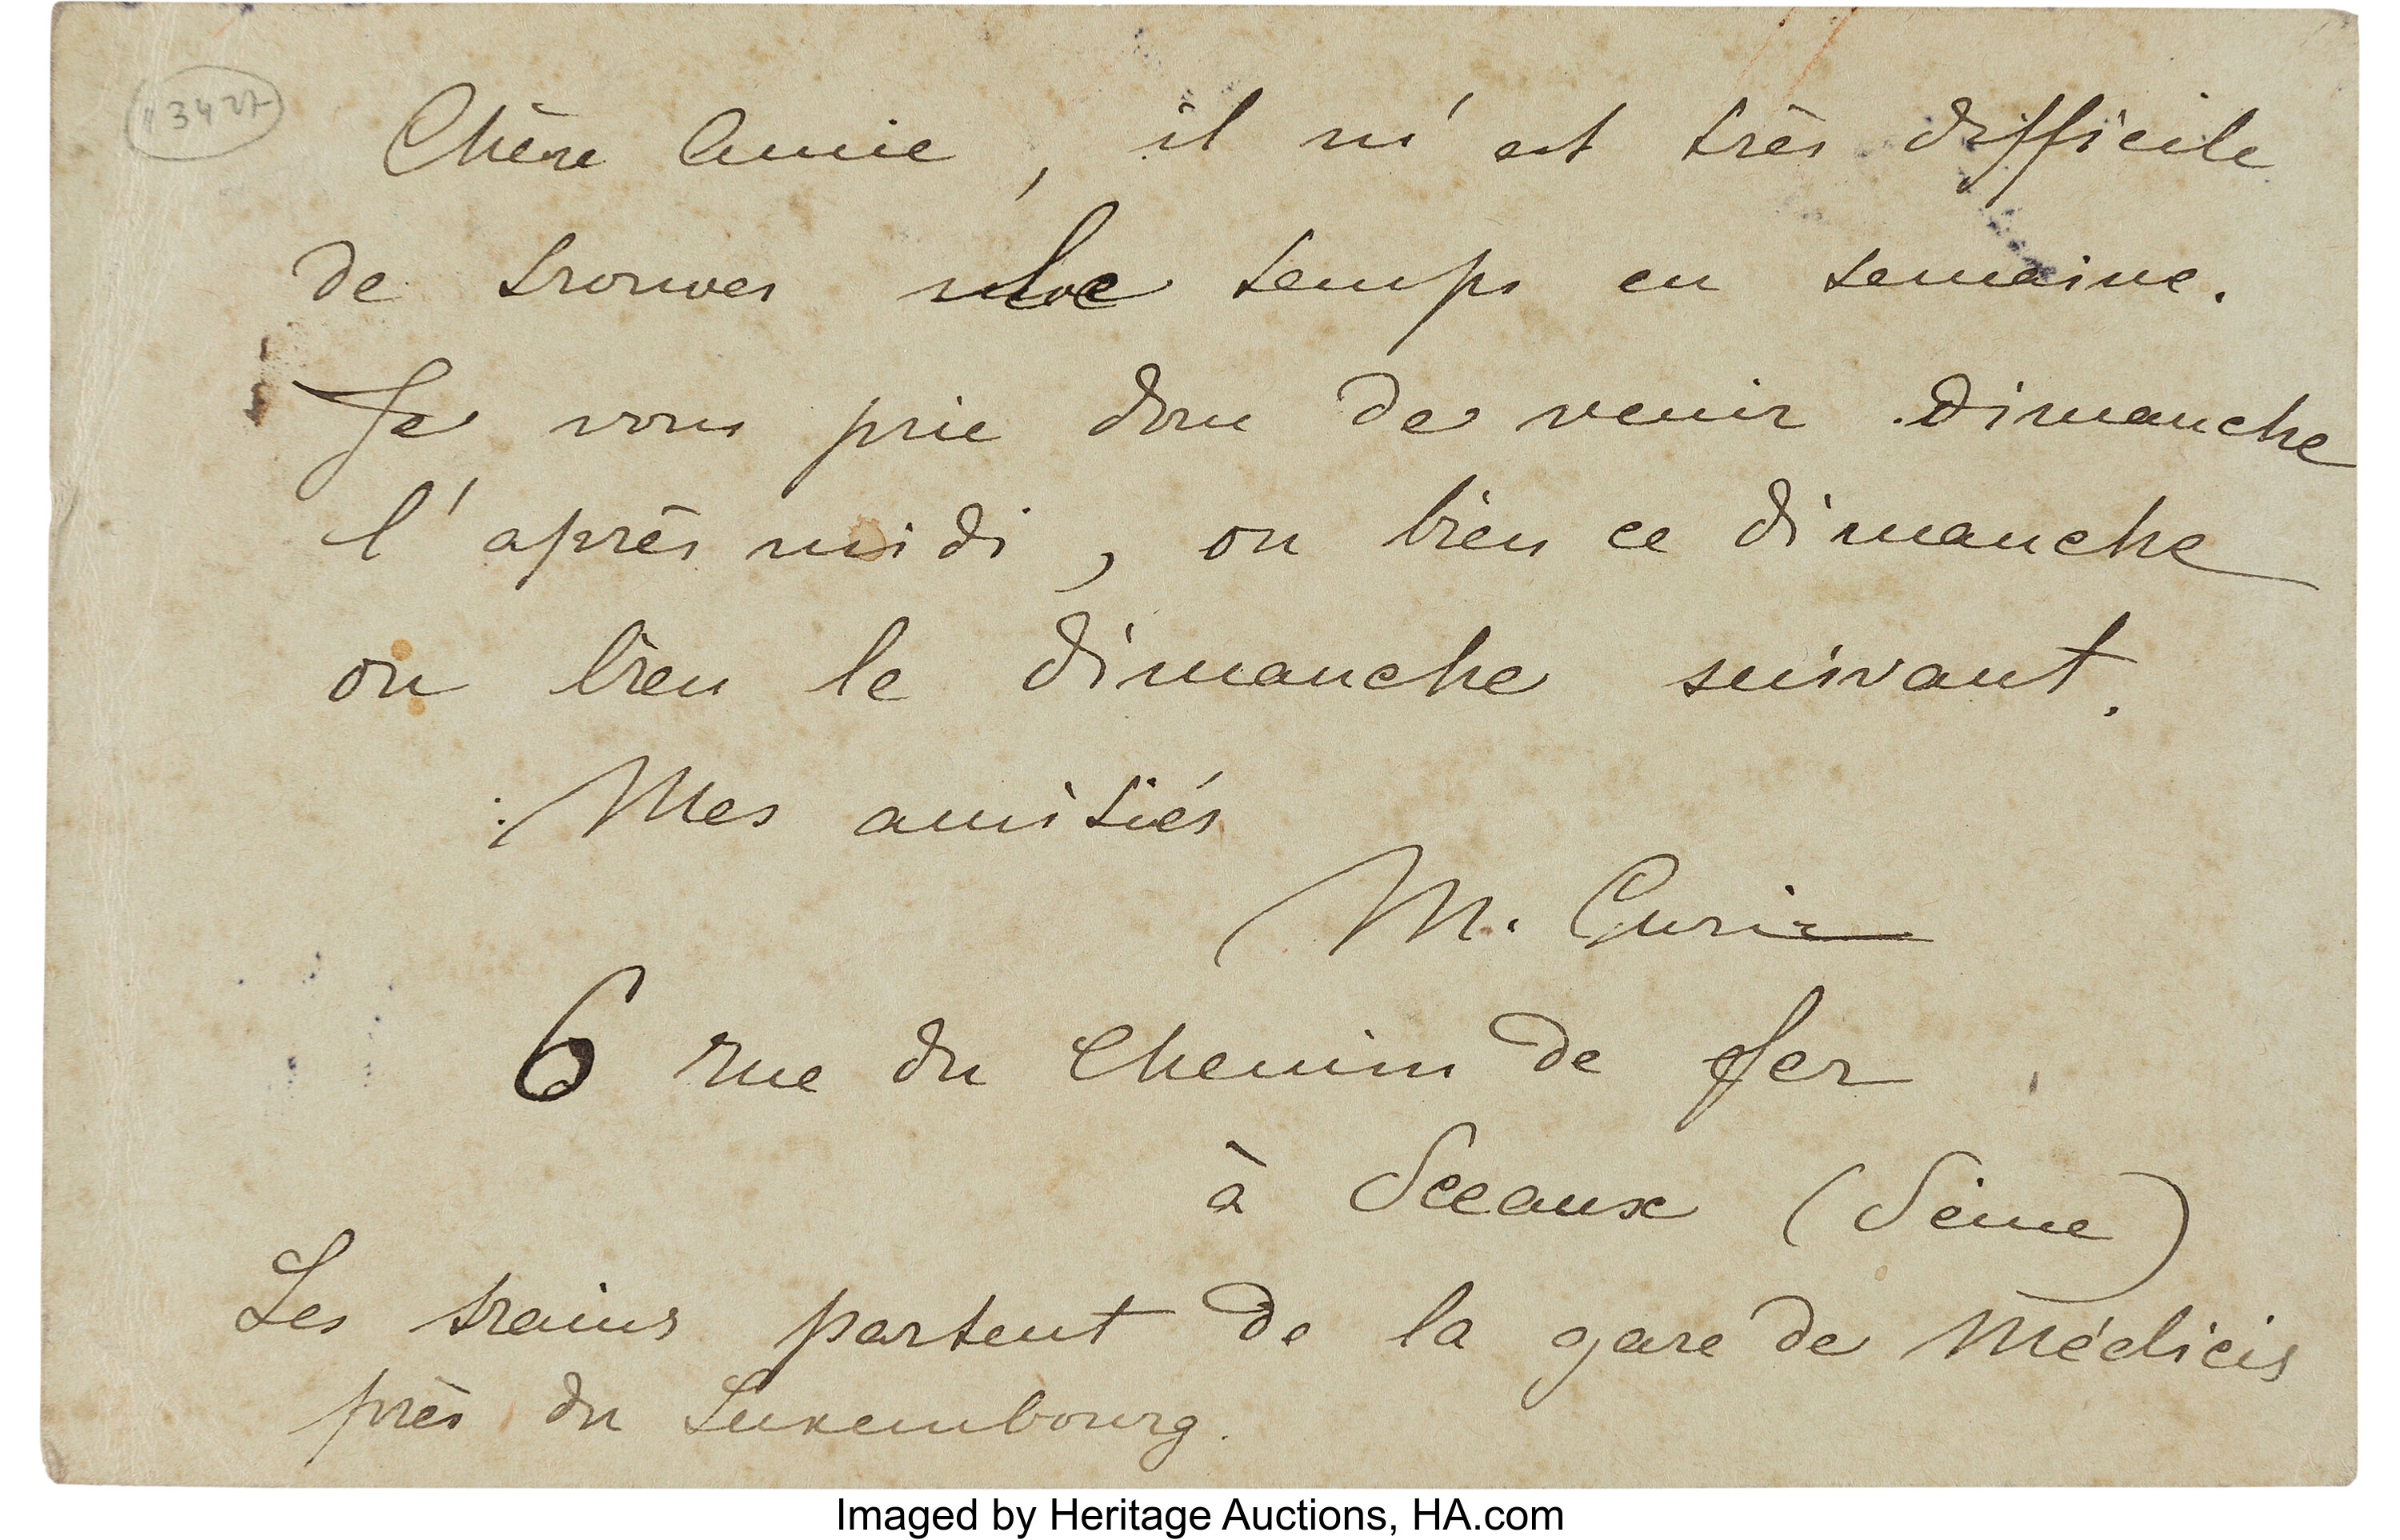 3427
Chère Amie, il m'est très difficile
de trouver le temps en semaine.
Je vous prie donc de venir dimanche
l'après midi, ou bien ce dimanche
ou bien le dimanche suivant.
Mes amitiés
M. Curie
6 rue du Chemin de fer
à Sceaux (Seine)
Les trains partent de la gare de Médicis
près du Luxembourg.
Imaged by Heritage Auctions, HA.com